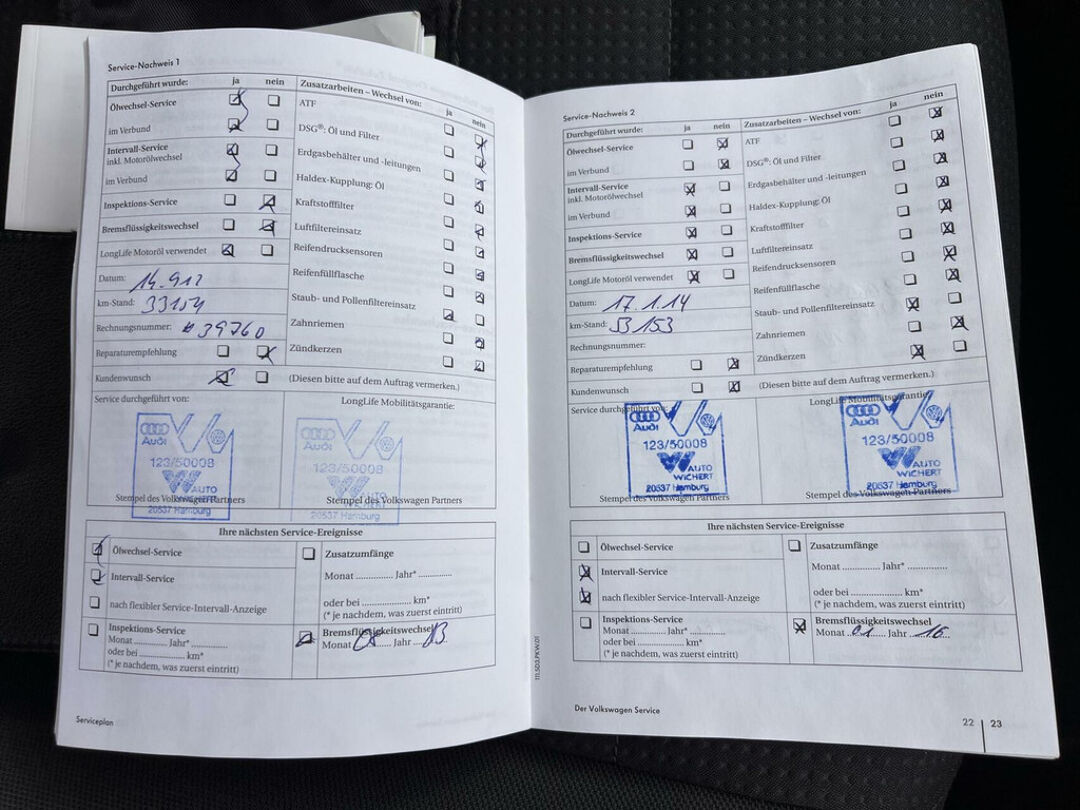 Service-Nachweis 1
Durchgeführt wurde: ja nein
Ölwechsel-Service
im Verbund
Intervall-Service
inkl. Motorölwechsel
im Verbund
Inspektions-Service
Bremsflüssigkeitswechsel
LongLife Motoröl verwendet
Datum: 14.912
km-Stand: 33154
Rechnungsnummer: #39760
Reparaturempfehlung
Kundenwunsch
Zusatzarbeiten – Wechsel von: ja nein
ATF
DSG®: Öl und Filter
Erdgasbehälter und -leitungen
Haldex-Kupplung: Öl
Kraftstofffilter
Luftfiltereinsatz
Reifendrucksensoren
Reifenfüllflasche
Staub- und Pollenfiltereinsatz
Zahnriemen
Zündkerzen
(Diesen bitte auf dem Auftrag vermerken.)
Service durchgeführt von:
Audi
123/50008
AUTO
WICHERT
20537 Hamburg
Stempel des Volkswagen Partners
LongLife Mobilitätsgarantie:
Audi
123/50008
AUTO
WICHERT
20537 Hamburg
Stempel des Volkswagen Partners
Ihre nächsten Service-Ereignisse
Ölwechsel-Service
Intervall-Service
nach flexibler Service-Intervall-Anzeige
Inspektions-Service
Monat ............ Jahr* ............
oder bei .................... km*
(* je nachdem, was zuerst eintritt)
Zusatzumfänge
Monat ............ Jahr* ............
oder bei .................... km*
(* je nachdem, was zuerst eintritt)
Bremsflüssigkeitswechsel
Monat 08 Jahr 13
Serviceplan
111.5D3.PKW.01
Service-Nachweis 2
Durchgeführt wurde: ja nein
Ölwechsel-Service
im Verbund
Intervall-Service
inkl. Motorölwechsel
im Verbund
Inspektions-Service
Bremsflüssigkeitswechsel
LongLife Motoröl verwendet
Datum: 17.1.14
km-Stand: 53153
Rechnungsnummer:
Reparaturempfehlung
Kundenwunsch
Zusatzarbeiten – Wechsel von: ja nein
ATF
DSG®: Öl und Filter
Erdgasbehälter und -leitungen
Haldex-Kupplung: Öl
Kraftstofffilter
Luftfiltereinsatz
Reifendrucksensoren
Reifenfüllflasche
Staub- und Pollenfiltereinsatz
Zahnriemen
Zündkerzen
(Diesen bitte auf dem Auftrag vermerken.)
Service durchgeführt von:
Audi
123/50008
AUTO
WICHERT
20537 Hamburg
Stempel des Volkswagen Partners
LongLife Mobilitätsgarantie:
Audi
123/50008
AUTO
WICHERT
20537 Hamburg
Stempel des Volkswagen Partners
Ihre nächsten Service-Ereignisse
Ölwechsel-Service
Intervall-Service
nach flexibler Service-Intervall-Anzeige
Inspektions-Service
Monat ............ Jahr* ............
oder bei .................... km*
(* je nachdem, was zuerst eintritt)
Zusatzumfänge
Monat ............ Jahr* ............
oder bei .................... km*
(* je nachdem, was zuerst eintritt)
Bremsflüssigkeitswechsel
Monat 01 Jahr 16
Der Volkswagen Service
22 23